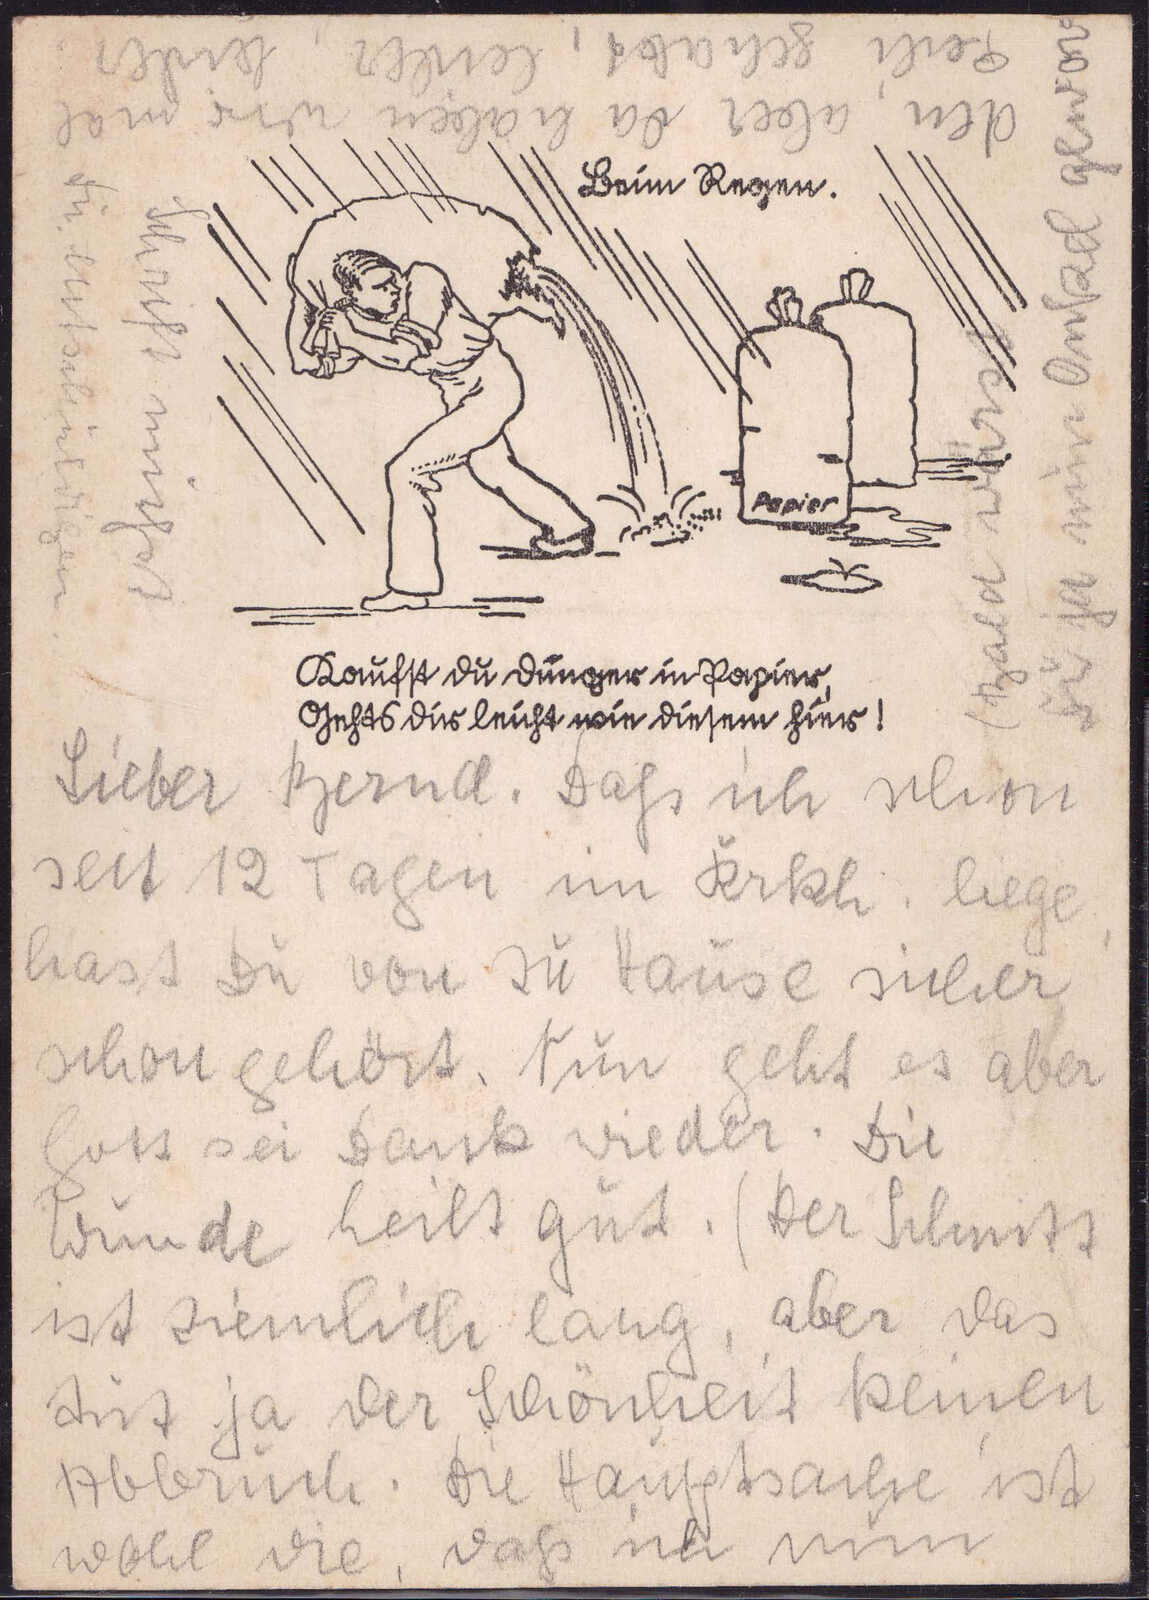 Beim Regen.
Papier
Kaufst du Dünger in Papier,
Gehts dir leicht wie diesem hier!
Lieber Bernd. Daß ich schon
seit 12 Tagen im Krkh. liege,
hast Du von zu Hause sicher
schon gehört. Nun geht es aber
Gott sei Dank wieder. Die
Wunde heilt gut. (Der Schnitt
ist ziemlich lang, aber das
tut ja der Schönheit keinen
Abbruch. Die Hauptsache ist
wohl die, daß ich nun
(Bald wärst
Du ja mein Onkel gewor
den, aber da haben wir mal
Pech gehabt, leider, leider
schreibst nicht
zu entschuldigen.